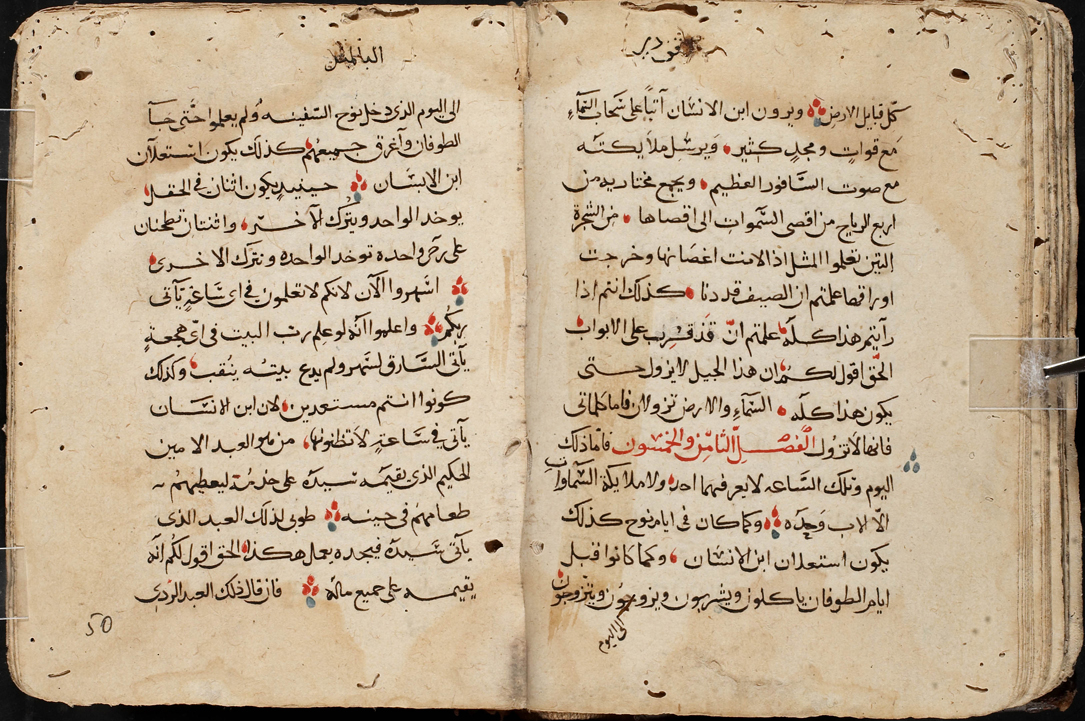 كل قبايل الارض ويرون ابن الانسان آتياً على سحاب السماء
مع قوات ومجد كثير ويرسل ملايكته
مع صوت السافور العظيم ويجمع مختاريه من
اربع الرياح من اقصى السموات الى اقصاها من الشجرة
التين تعلموا المثل اذا لانت اغصانها وخرجت
اوراقها علمتم ان الصيف قد دنا كذلك انتم اذا
رأيتم هذا كلّه علمتم انّ قد قرب على الابواب
الحق اقول لكم ان هذا الجيل لا يزول حتى
يكون هذا كلّه السماء والارض تزولان فاما كلماتى
فانها لا تزول الفصل الثامن والخمسون فاما ذلك
اليوم وتلك الساعه لا يعرفهما احد ولا ملايكة السماوات
الّا الاب وحده وكما كان فى ايام نوح كذلك
يكون استعلان ابن الانسان وكما كانوا قبل
ايام الطوفان ياكلون ويشربون ويزوجون ويتزوجون
الى اليوم
الى اليوم الذى دخل نوح السفينه ولم يعلموا حتى جآ
الطوفان وآغرق جميعهم كذلك يكون استعلان
ابن الانسان حينيدٍ يكون اثنان فى الحقل
يوخد الواحد ويترك الآخر واثنتان تطحنان
على رحى واحده توخد الواحده وتترك الاخرى
اسهروا الآن لانكم لا تعلمون فى اى ساعةٍ يآتى
ربكم واعلموا انه لو علم رب البيت فى اى هجعةٍ
يآتى السارق لسهر ولم يدع بيته ينقب وكذلك
كونوا انتم مستعدين لان ابن الانسان
يآتى فى ساعةٍ لا تظنونها من هو العبد الامين
الحكيم الذى يقيمه سيده على خدمته ليعطيهم
طعامهم فى حينه طوبى لذلك العبد الذى
يآتى سيده فيجده يعمل هكذا الحق اقول لكم انه
يقيمه على جميع ماله فان قال ذلك العبد الردى
50